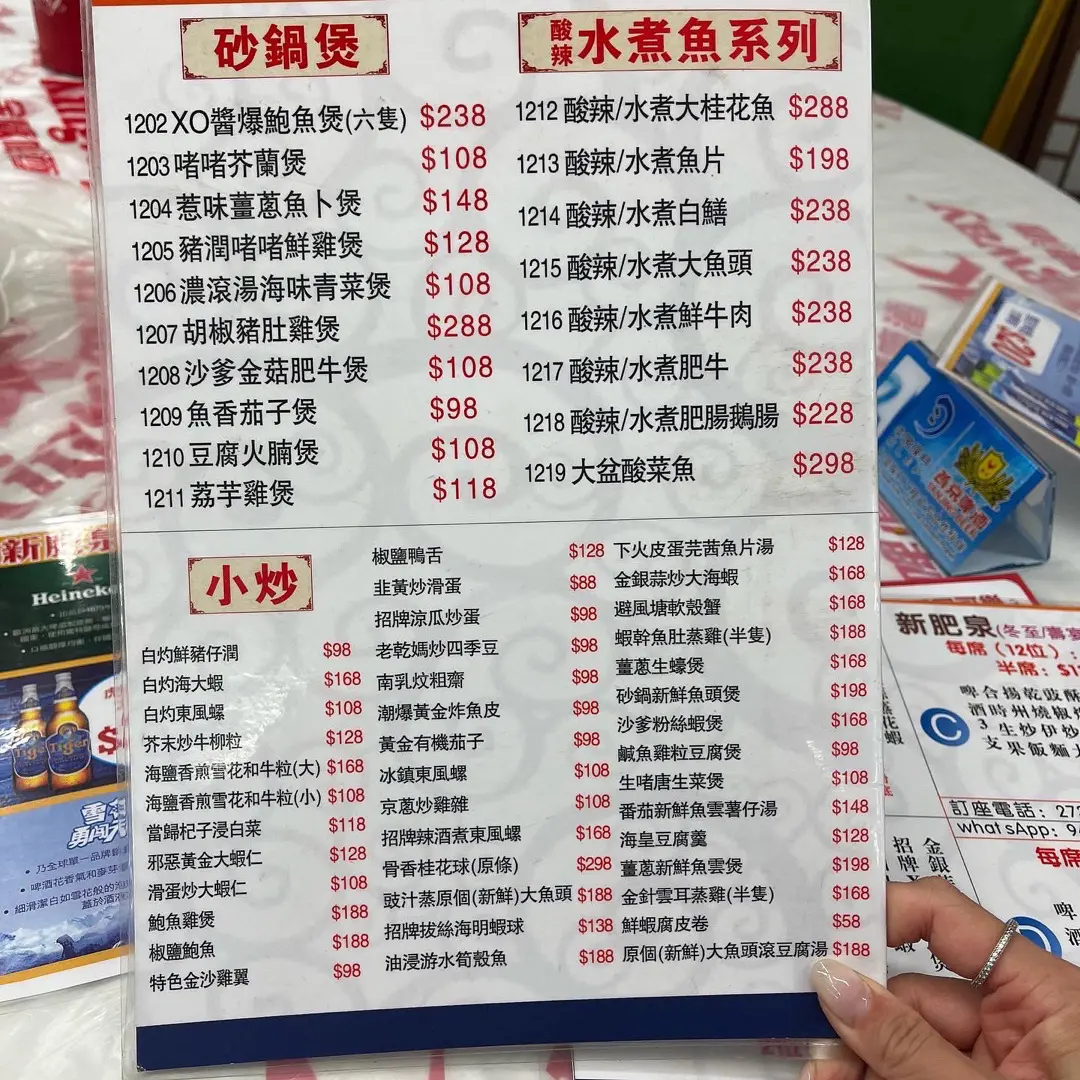 砂鍋煲
1202 XO醬爆鮑魚煲(六隻) $238
1203 啫啫芥蘭煲 $108
1204 惹味薑蔥魚卜煲 $148
1205 豬潤啫啫鮮雞煲 $128
1206 濃滾湯海味青菜煲 $108
1207 胡椒豬肚雞煲 $288
1208 沙爹金菇肥牛煲 $108
1209 魚香茄子煲 $98
1210 豆腐火腩煲 $108
1211 荔芋雞煲 $118
酸辣水煮魚系列
1212 酸辣/水煮大桂花魚 $288
1213 酸辣/水煮魚片 $198
1214 酸辣/水煮白鱔 $238
1215 酸辣/水煮大魚頭 $238
1216 酸辣/水煮鮮牛肉 $238
1217 酸辣/水煮肥牛 $238
1218 酸辣/水煮肥腸鵝腸 $228
1219 大盆酸菜魚 $298
小炒
白灼鮮豬仔潤 $98
白灼海大蝦 $168
白灼東風螺 $108
芥末炒牛柳粒 $128
海鹽香煎雪花和牛粒(大) $168
海鹽香煎雪花和牛粒(小) $108
當歸杞子浸白菜 $118
邪惡黃金大蝦仁 $128
滑蛋炒大蝦仁 $108
鮑魚雞煲 $188
椒鹽鮑魚 $188
特色金沙雞翼 $98
椒鹽鴨舌 $128
韭黃炒滑蛋 $88
招牌涼瓜炒蛋 $98
老乾媽炒四季豆 $98
南乳炆粗齋 $98
潮爆黃金炸魚皮 $98
黃金有機茄子 $98
冰鎮東風螺 $108
京蔥炒雞雜 $108
招牌辣酒煮東風螺 $168
骨香桂花球(原條) $298
豉汁蒸原個(新鮮)大魚頭 $188
招牌拔絲海明蝦球 $138
油浸游水筍殼魚 $188
下火皮蛋芫茜魚片湯 $128
金銀蒜炒大海蝦 $168
避風塘軟殼蟹 $168
蝦幹魚肚蒸雞(半隻) $188
薑蔥生蠔煲 $168
砂鍋新鮮魚頭煲 $198
沙爹粉絲蝦煲 $168
鹹魚雞粒豆腐煲 $98
生啫唐生菜煲 $108
番茄新鮮魚雲薯仔湯 $148
海皇豆腐羹 $128
薑蔥新鮮魚雲煲 $198
金針雲耳蒸雞(半隻) $168
鮮蝦腐皮卷 $58
原個(新鮮)大魚頭滾豆腐湯 $188
Tiger
Tiger
乃全球單一品牌
啤酒花香氣和麥芽
細滑潔白如雪花般的
新肥泉(冬至/壽宴
每席 (12位) :
半席: $1
C
訂座電話: 27
whatsApp: 9
每席